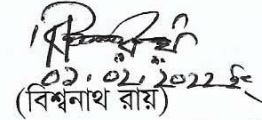 ০১.০২.২০২২ ইং
(বিশ্বনাথ রায়)